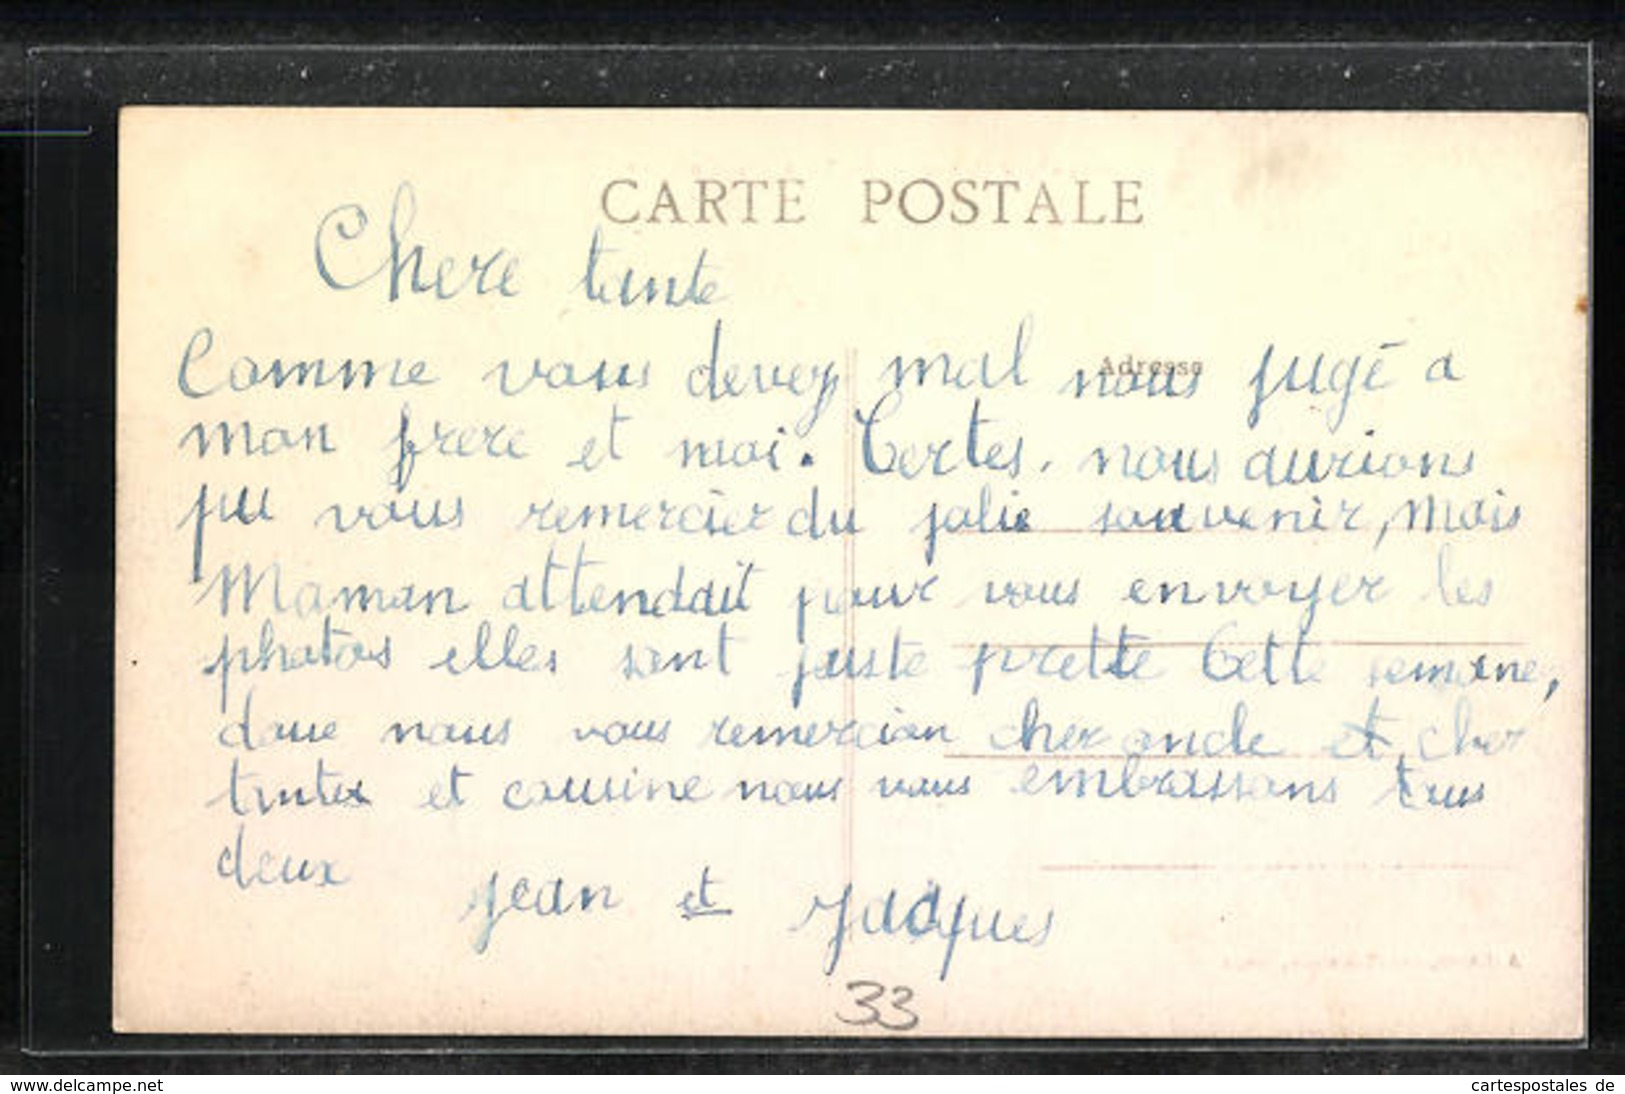 CARTE POSTALE
Chere tante
Comme vous devez mal nous jugé a
Adresse
mon frere et moi. Certes, nous aurions
pu vous remercier du jolie souvenir, Mais
Maman attendait pour vous envoyer les
photos elles sont juste prette Cette semane,
donc nous vous remercion cher oncle et cher
tante et cousine nous vous embrassons tous
deux
Jean et Jacques
33
www.delcampe.net
cartespostales de